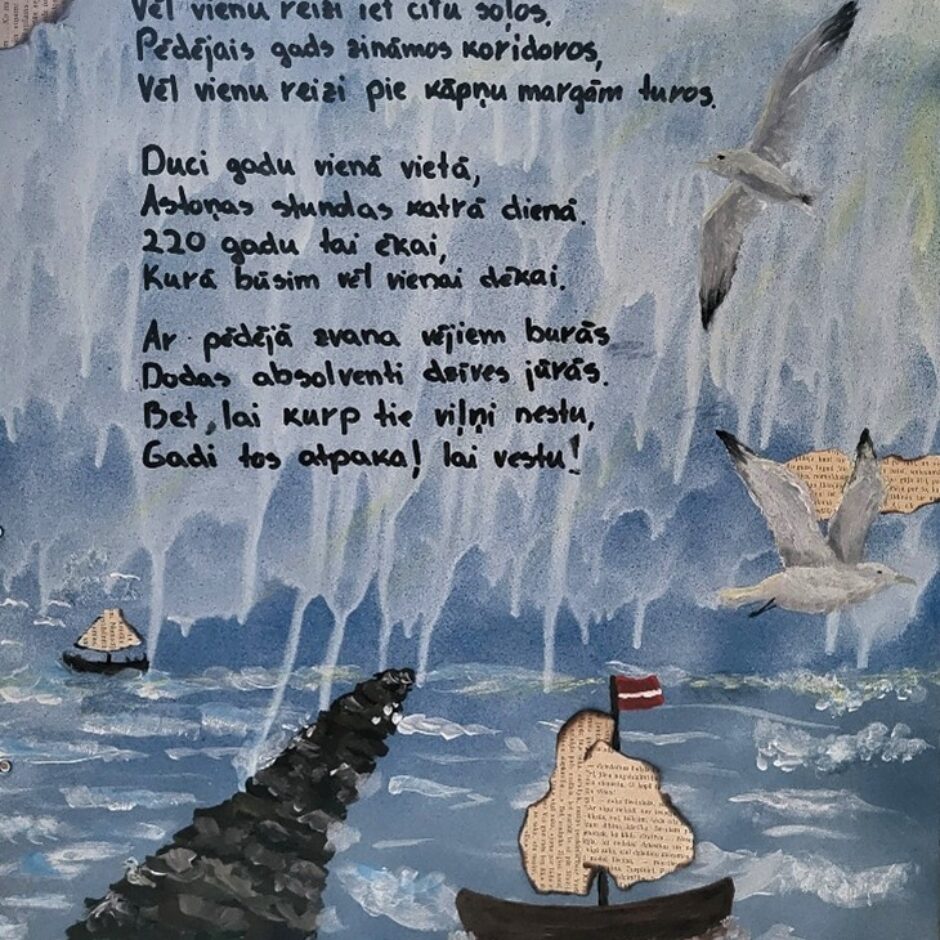 Vēl vienu reizi iet citu soļos,
Pēdējais gads zināmos koridoros,
Vēl vienu reizi pie kāpņu margām turos.
Duci gadu vienā vietā,
Astoņas stundas katrā dienā.
220 gadu tai ēkai,
Kurā būsim vēl vienai dēkai.
Ar pēdējā zvana vējiem burās
Dodas absolventi dzīves jūrās.
Bet, lai kurp tie viļņi nestu,
Gadi tos atpakaļ lai vestu!